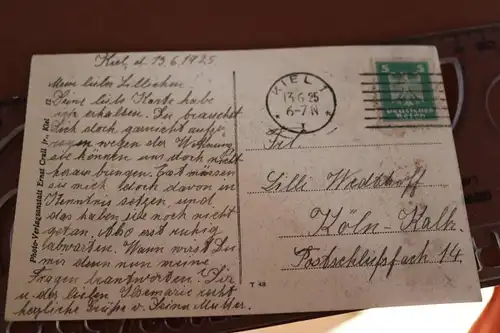 Kiel, d. 13.6.1925
Mein liebes Lillichen
Deine liebe Karte habe
wir erhalten. Du brauchst
Dich doch garnicht aufzu-
regen wegen der Wohnung
sie können uns doch nicht
heraus bringen. Erst müssen
sie mich doch davon in
Kenntnis setzen, und
das haben sie noch nicht
getan. Also erst ruhig
abwarten. Wann wirst Du
mir denn nun meine
Fragen beantworten. Dir
u. der lieben Annemarie recht
herzliche Grüße v. Deine Mutter.
Photo-Verlagsanstalt Ernst Crull jr., Kiel
T 48
KIEL 1
13.6.25
6-7 N
5 5
DEUTSCHES
REICH
Frl.
Lilli
Köln-Kalk.
Postschließfach 14.